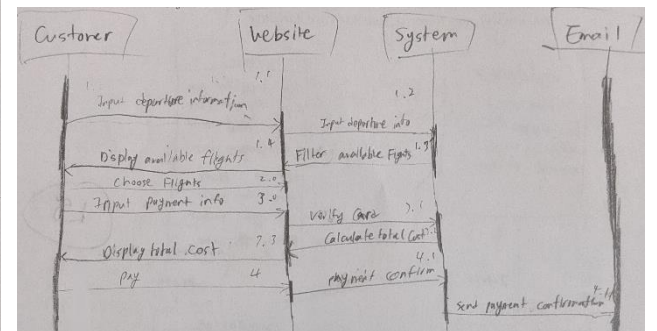 Customer
Website
System
Email
1.1
Input departure information
1.2
Input departure info
1.3
Filter available Flights
1.4
Display available flights
Choose Flights 2.0
Input payment info 3.0
Verify Card 3.1
Calculate total Cost
Display total cost 3.3
Pay 4
4.1
payment confirm
send payment confirmation